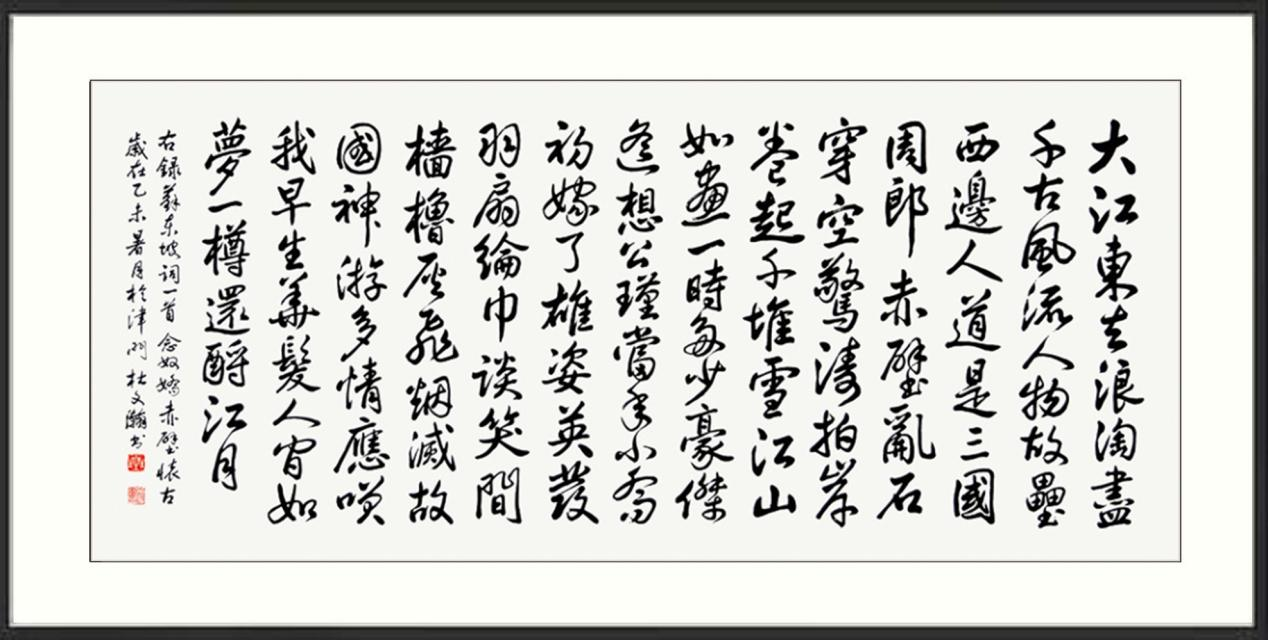 大江東去浪淘盡
千古風流人物故壘
西邊人道是三國
周郎赤壁亂石
穿空驚濤拍岸
卷起千堆雪江山
如畫一時多少豪傑
遙想公瑾當年小喬
初嫁了雄姿英發
羽扇綸巾談笑間
檣櫓灰飛烟滅故
國神游多情應咲
我早生華髮人間如
夢一樽還酹江月
右録蘇东坡词一首 念奴嬌赤壁懷古
歲在乙未暑月於津門 杜文瀚书